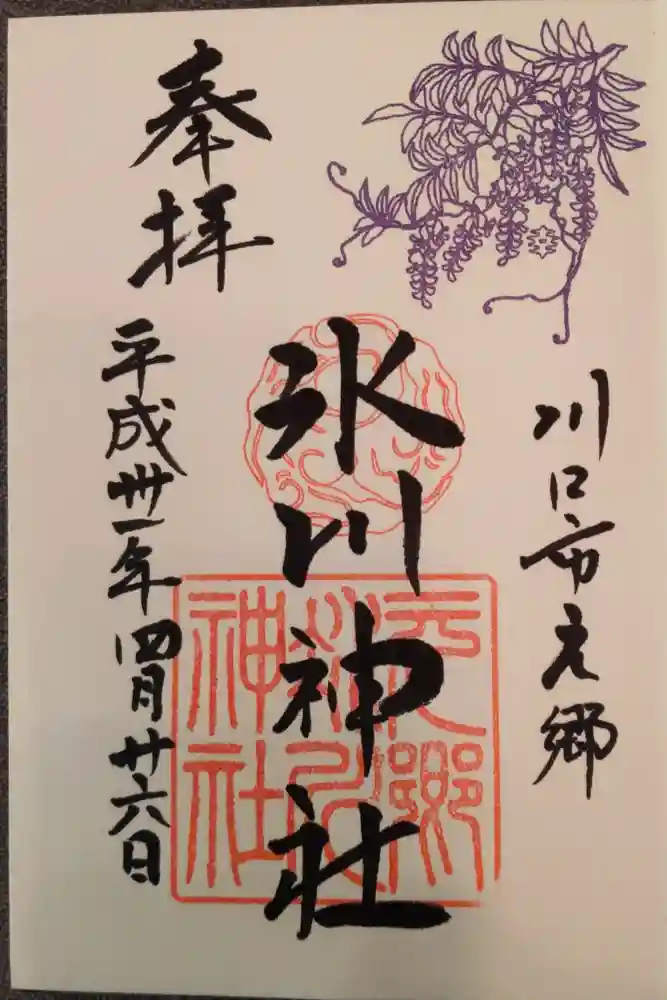 川口市元郷
奉拝
氷川神社
平成卅一年四月廿六日
元郷氷川神社